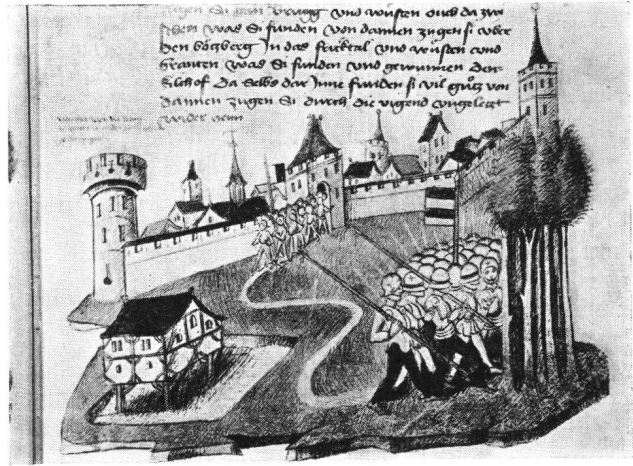 zugen eds gam brugg vnd wuͦsten ouch da zwi
schen was si funden von dannen zugen si vber
den boͤtzberg Jn das fricktal vnd wuͦsten vnd
branten was si funden vnd gewunnen den
kilchof da selbs dar Jnne funden si vil guͦtz von
dannen zugen Si durch die vigend vngeletzt
wider heim